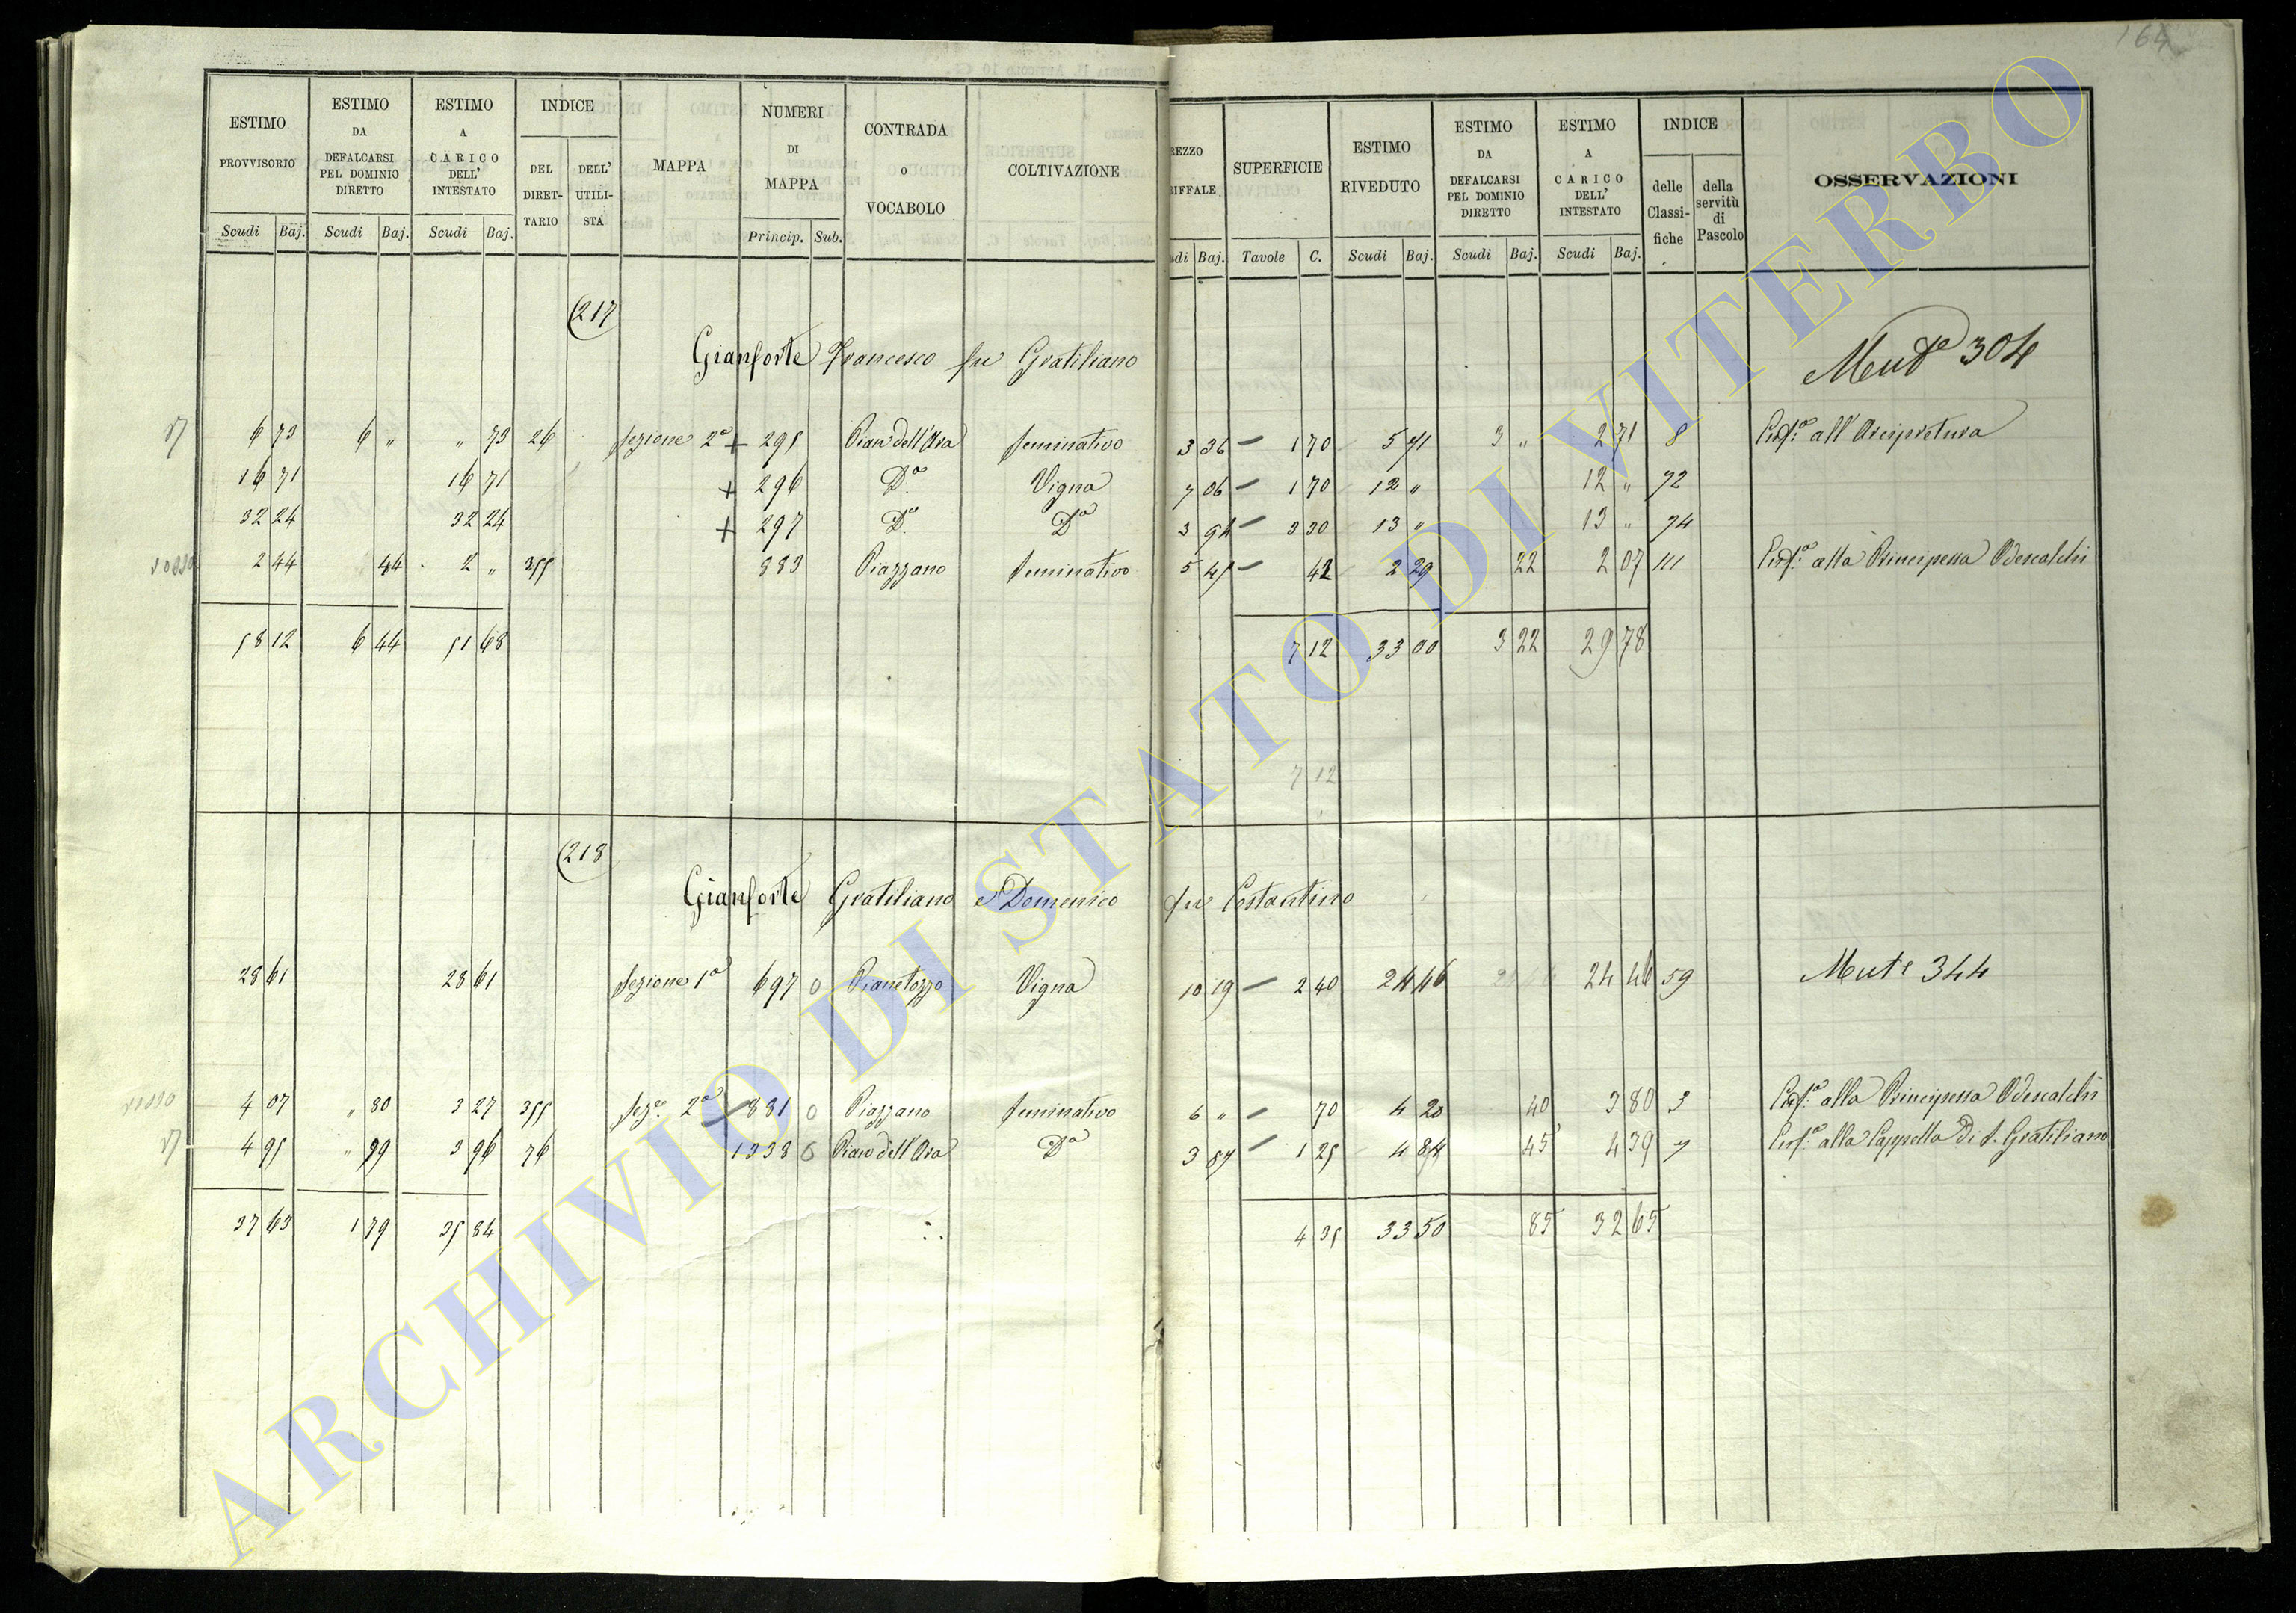 164
ESTIMO PROVVISORIO | ESTIMO DA DEFALCARSI PEL DOMINIO DIRETTO | ESTIMO A CARICO DELL' INTESTATO | INDICE | MAPPA | NUMERI DI MAPPA | CONTRADA o VOCABOLO | COLTIVAZIONE | REZZO RIFFALE | SUPERFICIE | ESTIMO RIVEDUTO | ESTIMO DA DEFALCARSI PEL DOMINIO DIRETTO | ESTIMO A CARICO DELL' INTESTATO | INDICE | OSSERVAZIONI
DEL DIRETTARIO | DELL' UTILISTA | delle Classifiche | della servitù di Pascolo
Scudi | Baj. | Scudi | Baj. | Scudi | Baj. | Princip. | Sub. | udi | Baj. | Tavole | C. | Scudi | Baj. | Scudi | Baj. | Scudi | Baj.
(217
Gianforte Francesco fu Gratiliano Mut.e 304
6 73 | 6 " | " 73 | 26 | Sezione 2a + 295 | Pian dell'Ara | Seminativo | 3 36 | – 1 70 | 5 71 | 3 " | 2 71 | 8 | all'Arcipretura
16 71 | 16 71 | + 296 | Do | Vigna | 7 06 | – 1 70 | 12 " | 12 " | 72
32 24 | 32 24 | + 297 | Do | Da | 3 94 | – 3 30 | 13 " | 13 " | 74
2 44 | 44 | 2 " | 355 | 883 | Piazzano | Seminativo | 5 45 | – 42 | 2 29 | 22 | 2 07 | 111 | alla Principessa Odescalchi
58 12 | 6 44 | 51 68 | 7 12 | 33 00 | 3 22 | 29 78
7 12
(218
Gianforte Gratiliano e Domenico fu Costantino
28 61 | 28 61 | Sezione 1a 697 0 | Pianetozzo | Vigna | 10 19 | – 2 40 | 24 46 | 24 46 | 59 | Mut.e 344
4 07 | " 80 | 3 27 | 355 | Sez.e 2a 881 0 | Piazzano | Seminativo | 6 " | – 70 | 4 20 | 40 | 3 80 | 3 | alla Principessa Odescalchi
4 95 | " 99 | 3 96 | 76 | 1338 0 | Pian dell'Ara | Da | 3 87 | – 1 25 | 4 84 | 45 | 4 39 | 7 | alla Cappella di S. Gratiliano
37 63 | 1 79 | 35 84 | 4 35 | 33 50 | 85 | 32 65
ARCHIVIO DI STATO DI VITERBO